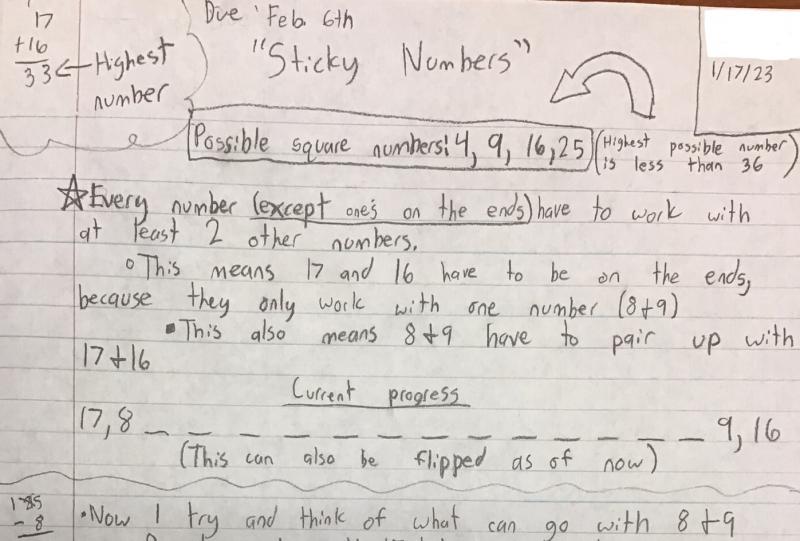 17
+16
33 ← Highest
number
Due Feb. 6th
"Sticky Numbers"
1/17/23
Possible square numbers: 4, 9, 16, 25 (Highest possible number
is less than 36)
☆ Every number (except one's on the ends) have to work with
at least 2 other numbers.
◦ This means 17 and 16 have to be on the ends,
because they only work with one number (8+9)
▪ This also means 8+9 have to pair up with
17+16
Current progress
17, 8 _ _ _ _ _ _ _ _ _ _ _ _ _ 9, 16
(This can also be flipped as of now)
- 8
• Now I try and think of what can go with 8+9